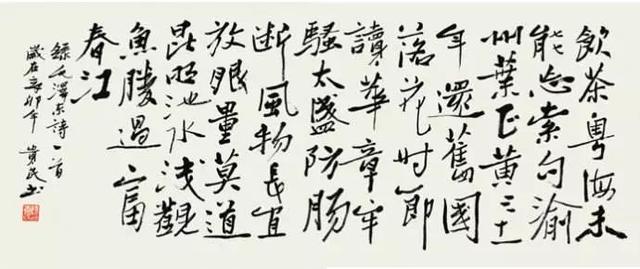 飲茶粤海未
能忘索句渝
州葉正黄三十一
年還舊國
落花时節
讀華章牢
騷太盛防腸
断風物長宜
放眼量莫道
昆明池水浅觀
魚勝過富
春江
錄毛澤东詩一首
歲在辛卯年 貴民书